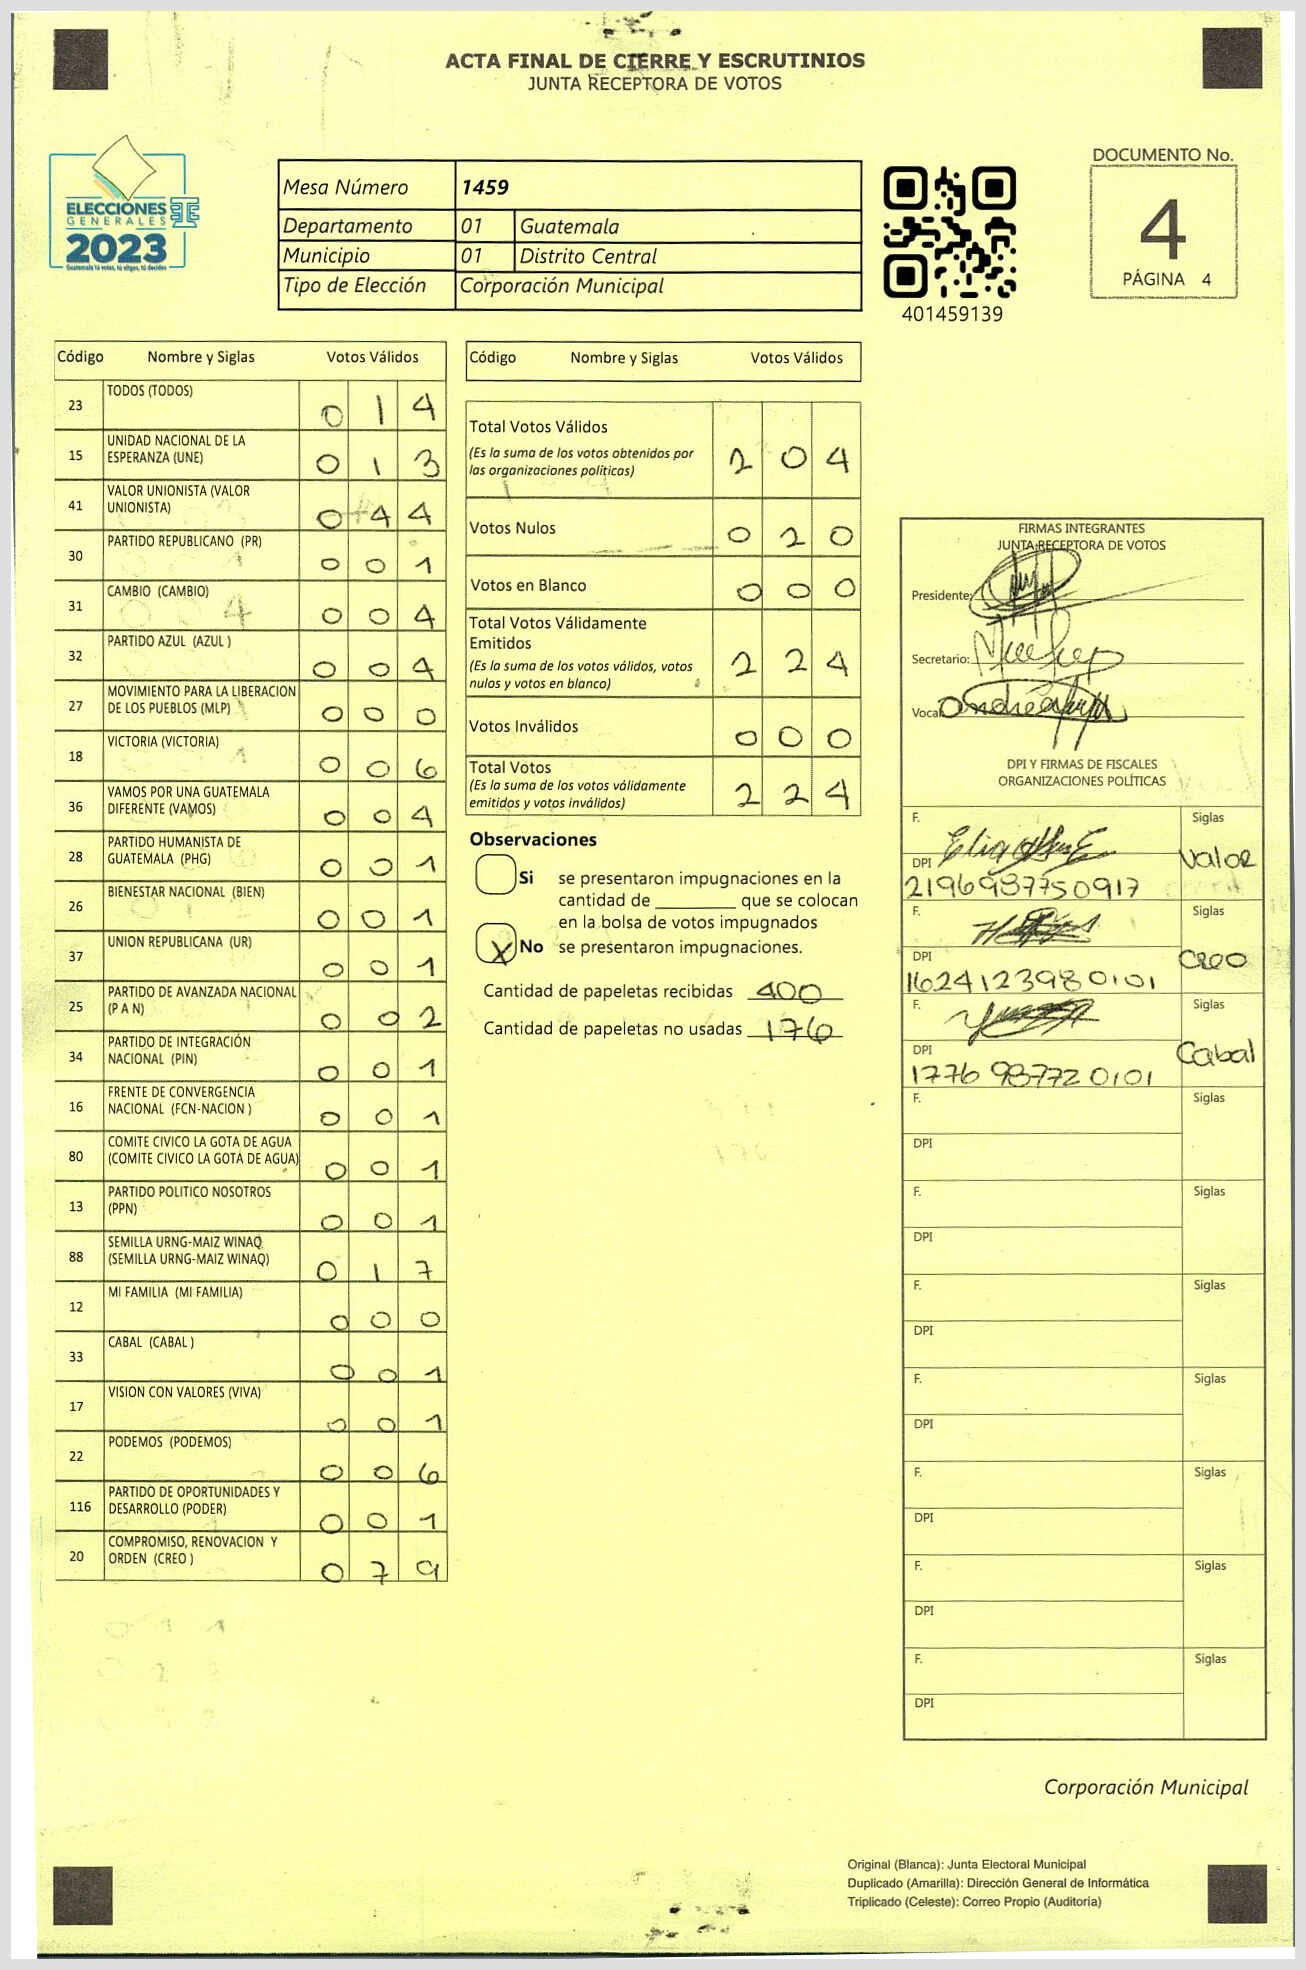 ACTA FINAL DE CIERRE Y ESCRUTINIOS
JUNTA RECEPTORA DE VOTOS
ELECCIONES
GENERALES
2023
Guatemala tú votas, tú eliges, tú decides
Mesa Número 1459
Departamento 01 Guatemala
Municipio 01 Distrito Central
Tipo de Elección Corporación Municipal
401459139
DOCUMENTO No.
4
PÁGINA 4
Código Nombre y Siglas Votos Válidos
23 TODOS (TODOS) 0 1 4
15 UNIDAD NACIONAL DE LA ESPERANZA (UNE) 0 1 3
41 VALOR UNIONISTA (VALOR UNIONISTA) 0 4 4
30 PARTIDO REPUBLICANO (PR) 0 0 1
31 CAMBIO (CAMBIO) 0 0 4
32 PARTIDO AZUL (AZUL ) 0 0 4
27 MOVIMIENTO PARA LA LIBERACION DE LOS PUEBLOS (MLP) 0 0 0
18 VICTORIA (VICTORIA) 0 0 6
36 VAMOS POR UNA GUATEMALA DIFERENTE (VAMOS) 0 0 4
28 PARTIDO HUMANISTA DE GUATEMALA (PHG) 0 0 1
26 BIENESTAR NACIONAL (BIEN) 0 0 1
37 UNION REPUBLICANA (UR) 0 0 1
25 PARTIDO DE AVANZADA NACIONAL (P A N) 0 0 2
34 PARTIDO DE INTEGRACIÓN NACIONAL (PIN) 0 0 1
16 FRENTE DE CONVERGENCIA NACIONAL (FCN-NACION ) 0 0 1
80 COMITE CIVICO LA GOTA DE AGUA (COMITE CIVICO LA GOTA DE AGUA) 0 0 1
13 PARTIDO POLITICO NOSOTROS (PPN) 0 0 1
88 SEMILLA URNG-MAIZ WINAQ (SEMILLA URNG-MAIZ WINAQ) 0 1 7
12 MI FAMILIA (MI FAMILIA) 0 0 0
33 CABAL (CABAL ) 0 0 1
17 VISION CON VALORES (VIVA) 0 0 1
22 PODEMOS (PODEMOS) 0 0 6
116 PARTIDO DE OPORTUNIDADES Y DESARROLLO (PODER) 0 0 1
20 COMPROMISO, RENOVACION Y ORDEN (CREO ) 0 7 9
Código Nombre y Siglas Votos Válidos
Total Votos Válidos 2 0 4
(Es la suma de los votos obtenidos por
las organizaciones políticas)
Votos Nulos 0 2 0
Votos en Blanco 0 0 0
Total Votos Válidamente
Emitidos 2 2 4
(Es la suma de los votos válidos, votos
nulos y votos en blanco)
Votos Inválidos 0 0 0
Total Votos 2 2 4
(Es la suma de los votos válidamente
emitidos y votos inválidos)
Observaciones
Si se presentaron impugnaciones en la
cantidad de ________ que se colocan
en la bolsa de votos impugnados
X No se presentaron impugnaciones.
Cantidad de papeletas recibidas 400
Cantidad de papeletas no usadas 176
FIRMAS INTEGRANTES
JUNTA RECEPTORA DE VOTOS
Presidente:
Secretario:
Vocal
DPI Y FIRMAS DE FISCALES
ORGANIZACIONES POLÍTICAS
F. Siglas
Valor
DPI
2196987750917
F. Siglas
Creo
DPI
1624123980101
F. Siglas
Cabal
DPI
1776 98772 0101
F. Siglas
DPI
F. Siglas
DPI
F. Siglas
DPI
F. Siglas
DPI
F. Siglas
DPI
F. Siglas
DPI
F. Siglas
DPI
Corporación Municipal
Original (Blanca): Junta Electoral Municipal
Duplicado (Amarilla): Dirección General de Informática
Triplicado (Celeste): Correo Propio (Auditoría)